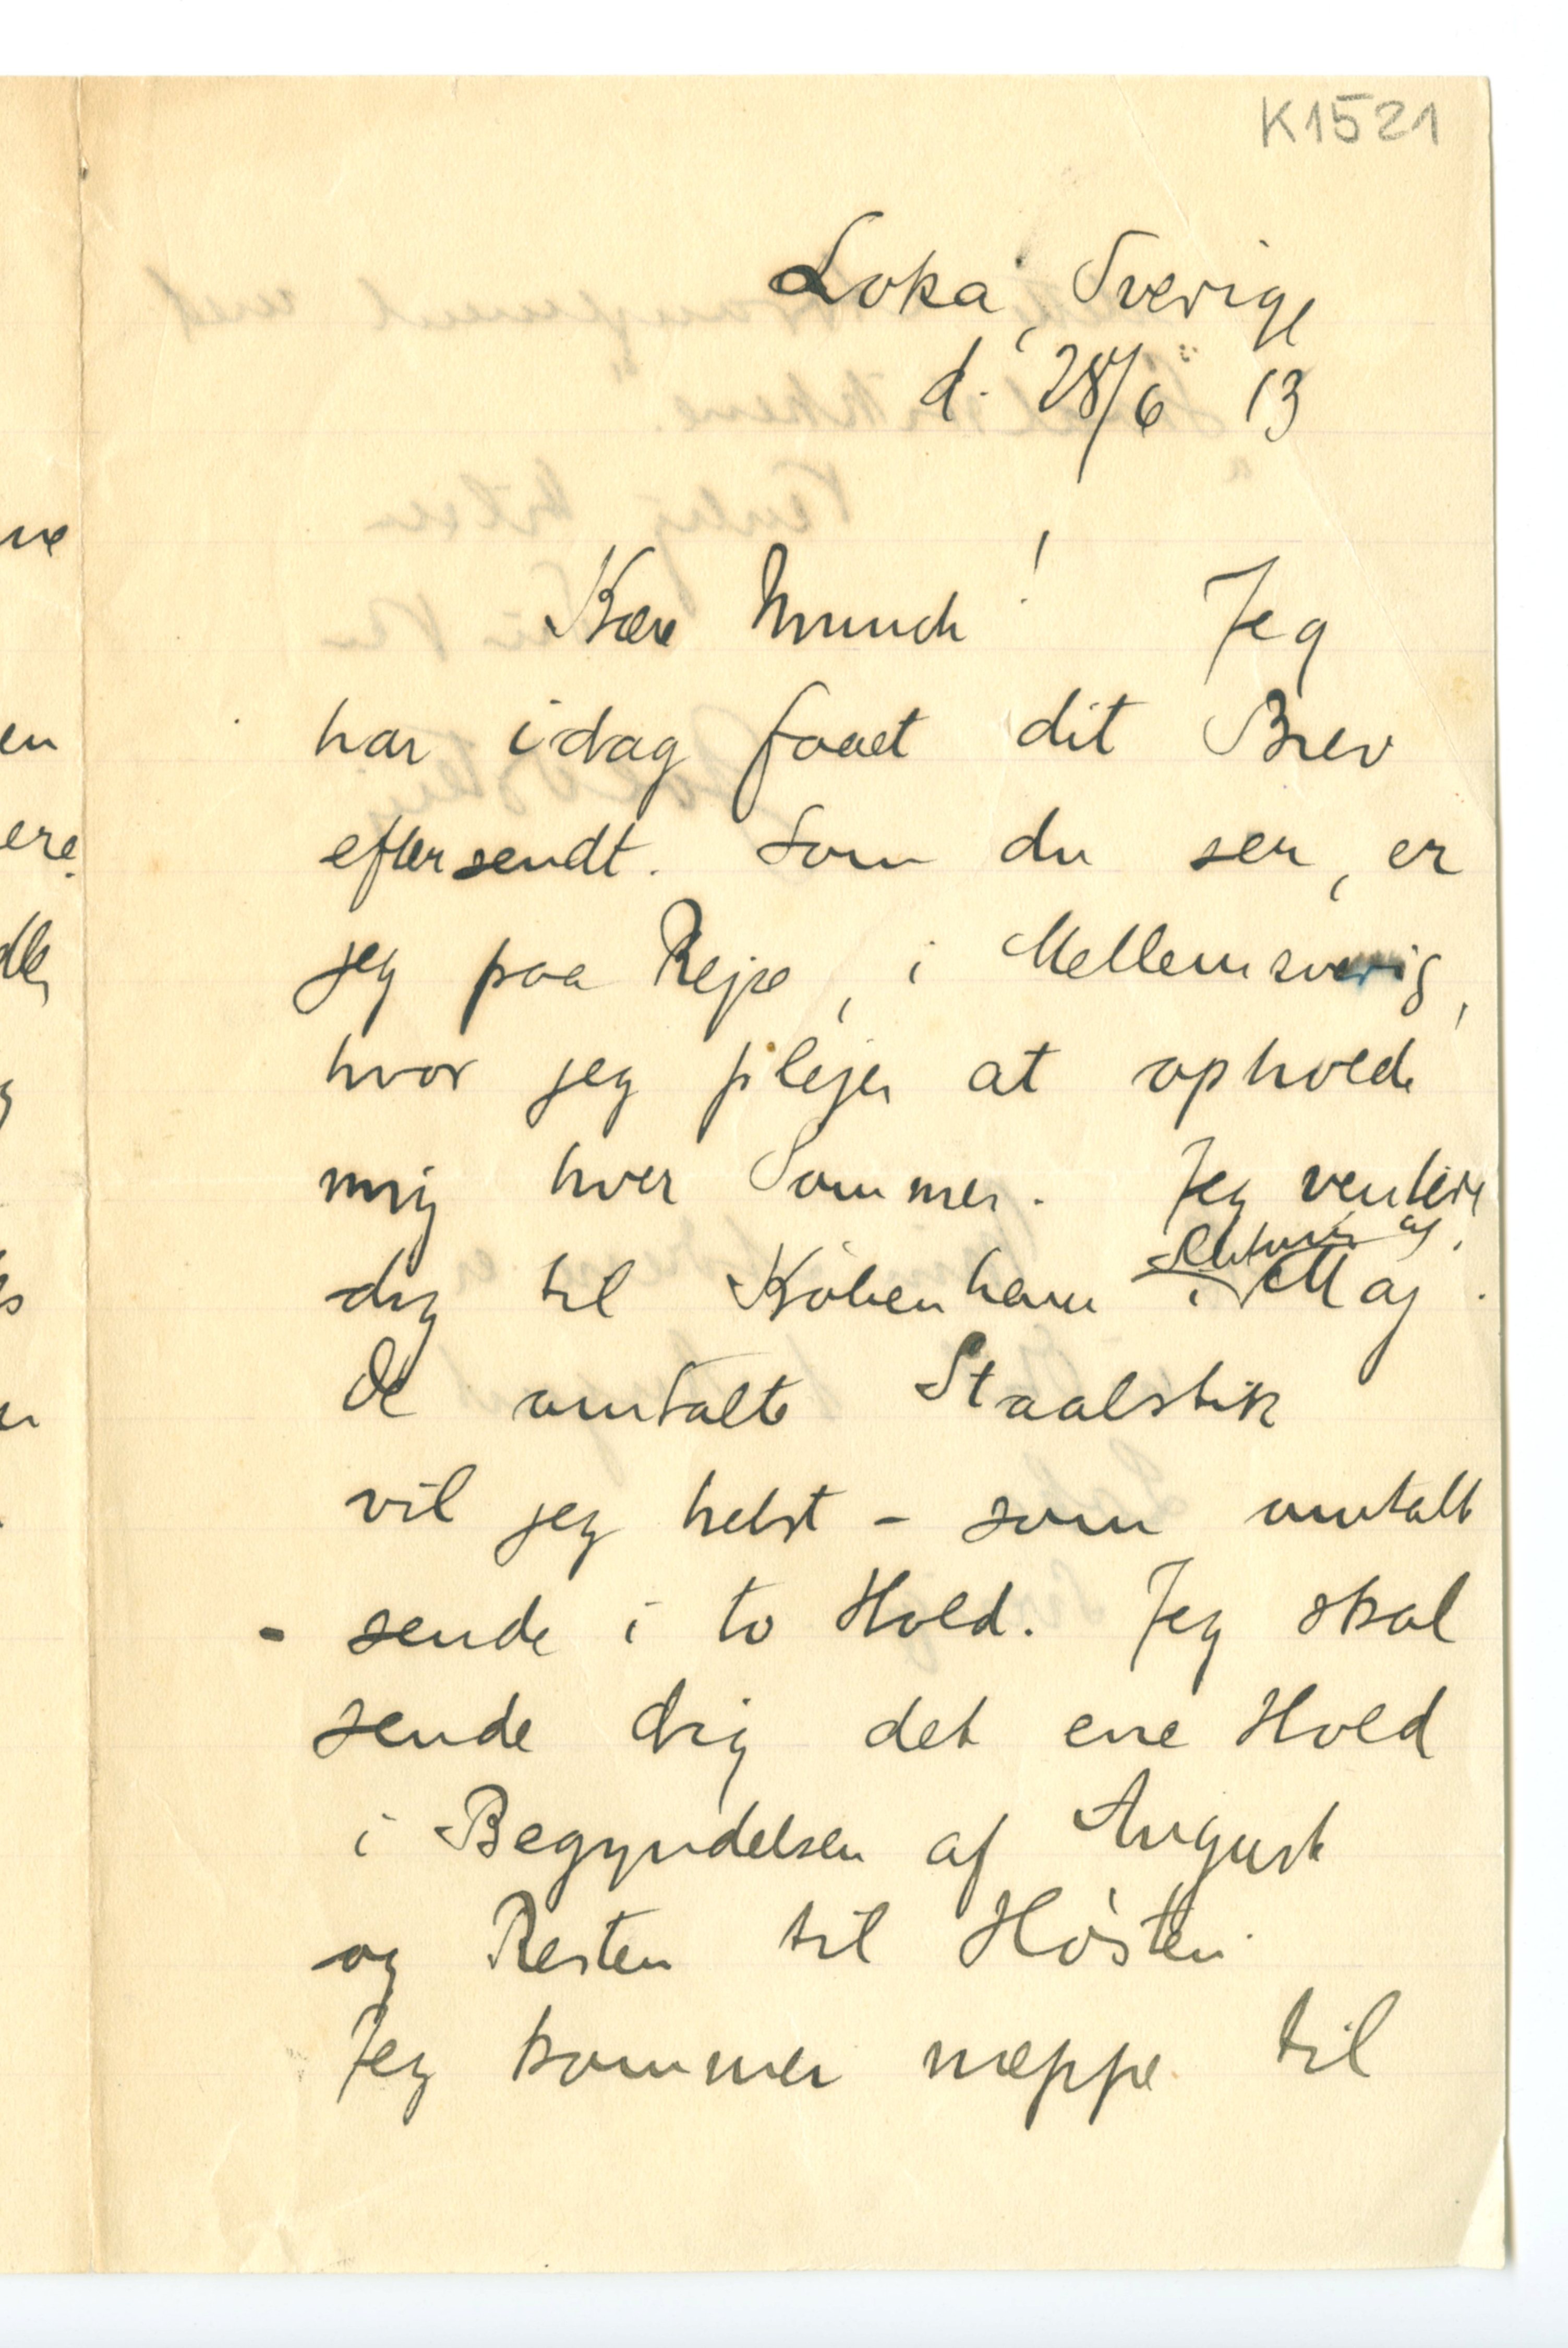 K1521
Loka, Sverige
d. 28/6 13
Kære Munch! Jeg
har idag faaet dit Brev
eftersendt. Som du ser, er
jeg paa Rejse, i Mellemsverig,
hvor jeg plejer at opholde
mig hver Sommer. Jeg ventede
Slutningen af
dig til København i Maj.
De omtalte Staalstik
vil jeg helst - som omtalt
- sende i to Hold. Jeg skal
sende dig det ene Hold
i Begyndelsen af August
og Resten til Høsten.
Jeg kommer næppe til